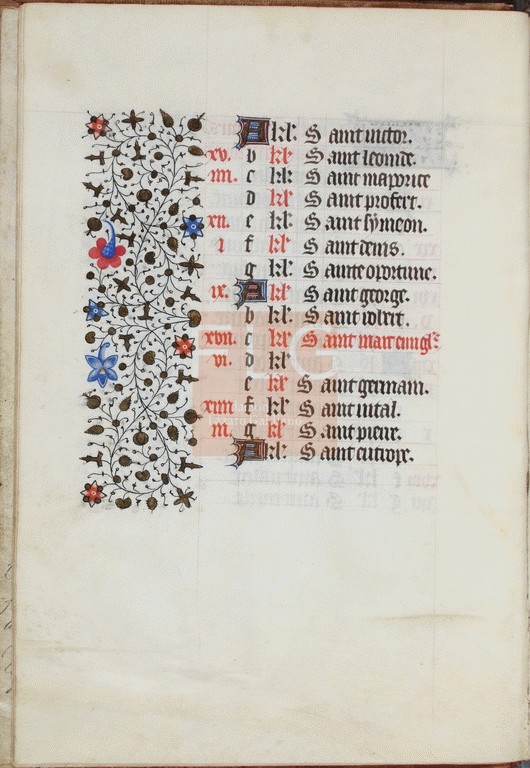 A kl' Saint victor.
xv. b kl' Saint leonide.
iiii. c kl' Saint maxorice
d kl' Saint profert.
xii. e kl' Saint symeon.
i f kl' Saint denis.
g kl' Sainte oportune.
ix. A kl' Saint george.
b kl' Saint
xvii. c kl' Saint marc
vi. d kl'
e kl' Saint germain.
xiiii f kl' Saint vital.
iii. g kl' Saint pierre.
A kl' Saint eutrope.
FLG